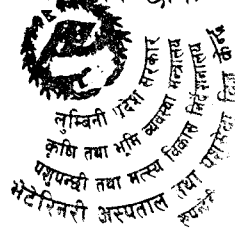 लुम्बिनी प्रदेश सरकार
कृषि तथा भूमि व्यवस्था मन्त्रालय
पशुपन्छी तथा मत्स्य विकास निर्देशनालय
भेटेरिनरी अस्पताल तथा पशुसेवा विज्ञ केन्द्र
रुपन्देही